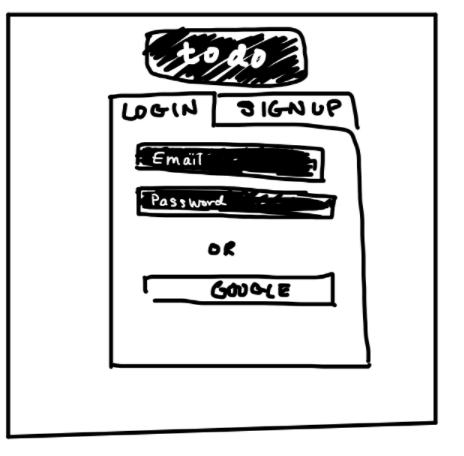 todo
LOGIN SIGNUP
Email
Password
OR
GOOGLE